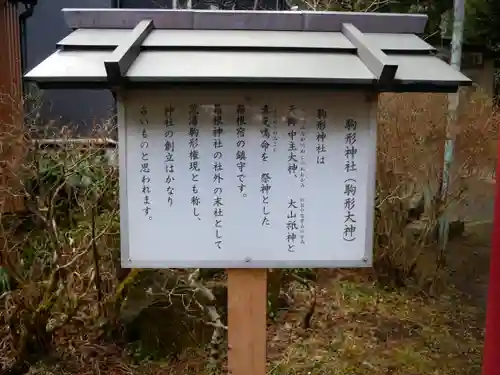 駒形神社(駒形大神)
駒形神社は
天御中主大神、大山祇神と
素戔嗚命を祭神とした
箱根宿の鎮守です。
箱根神社の社外の末社として
荒湯駒形権現とも称し、
神社の創立はかなり
古いものと思われます。